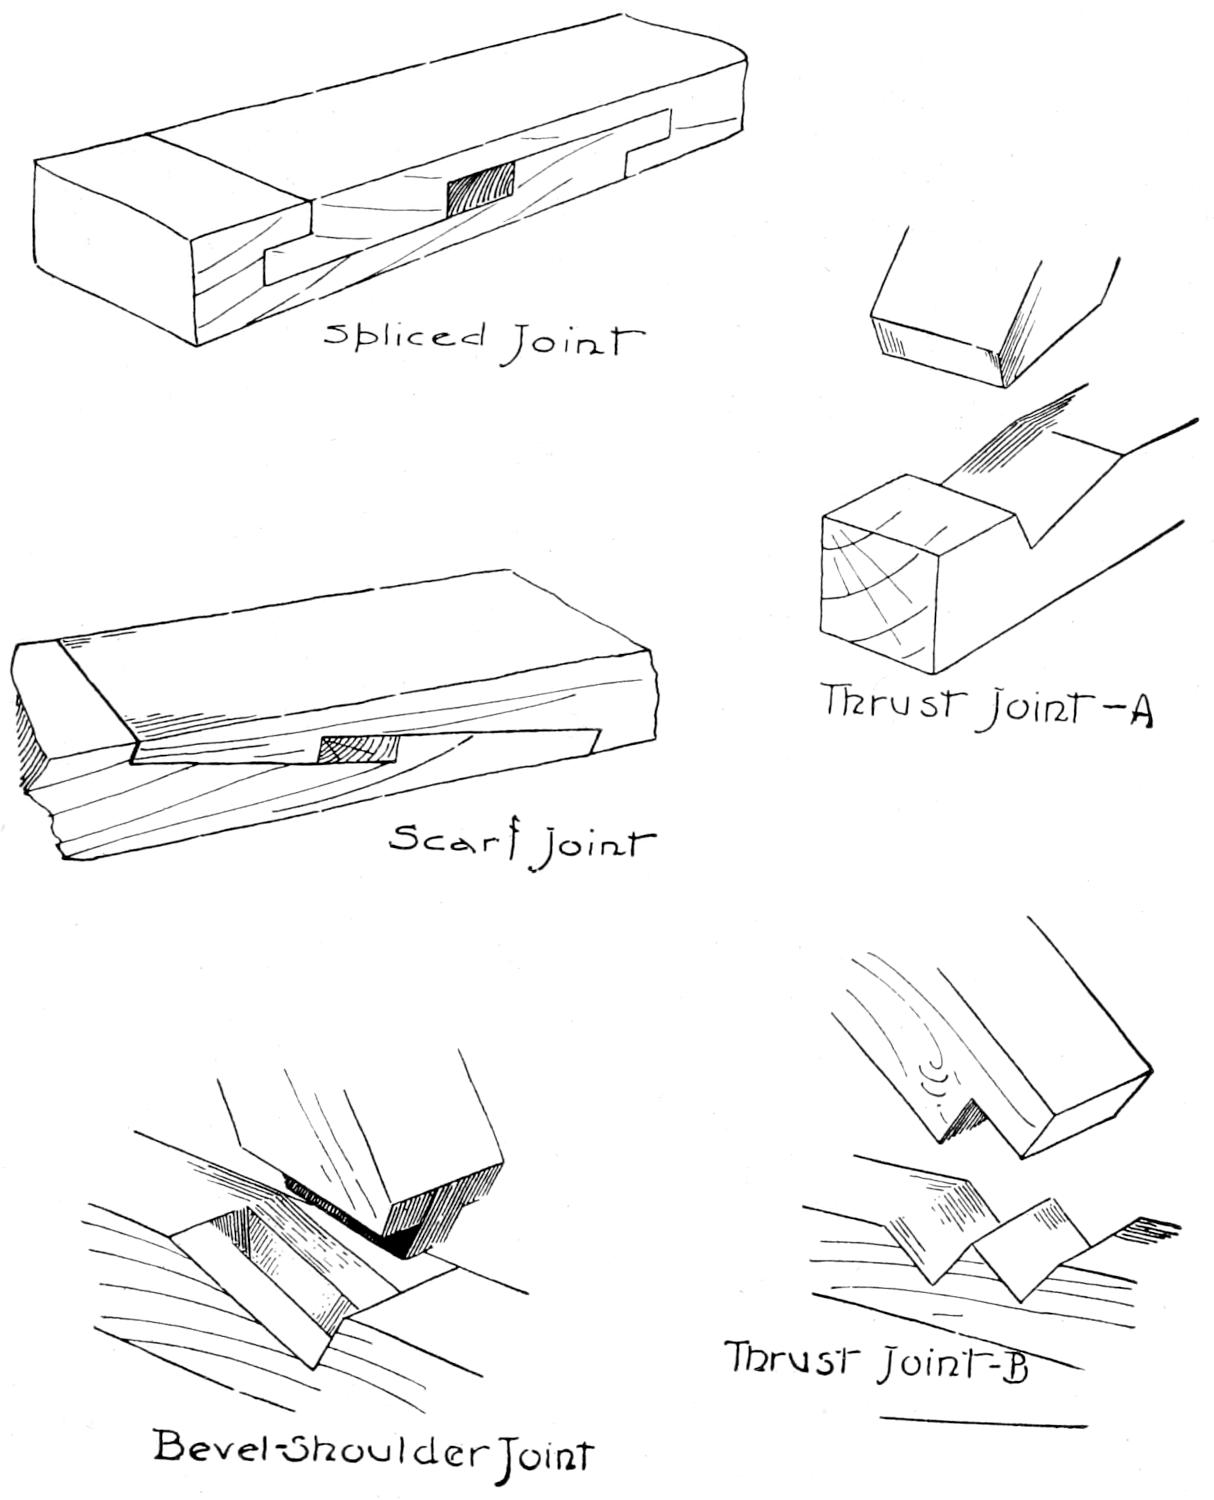 Spliced Joint
Thrust Joint-A
Scarf Joint
Thrust Joint-B
Bevel-Shoulder Joint